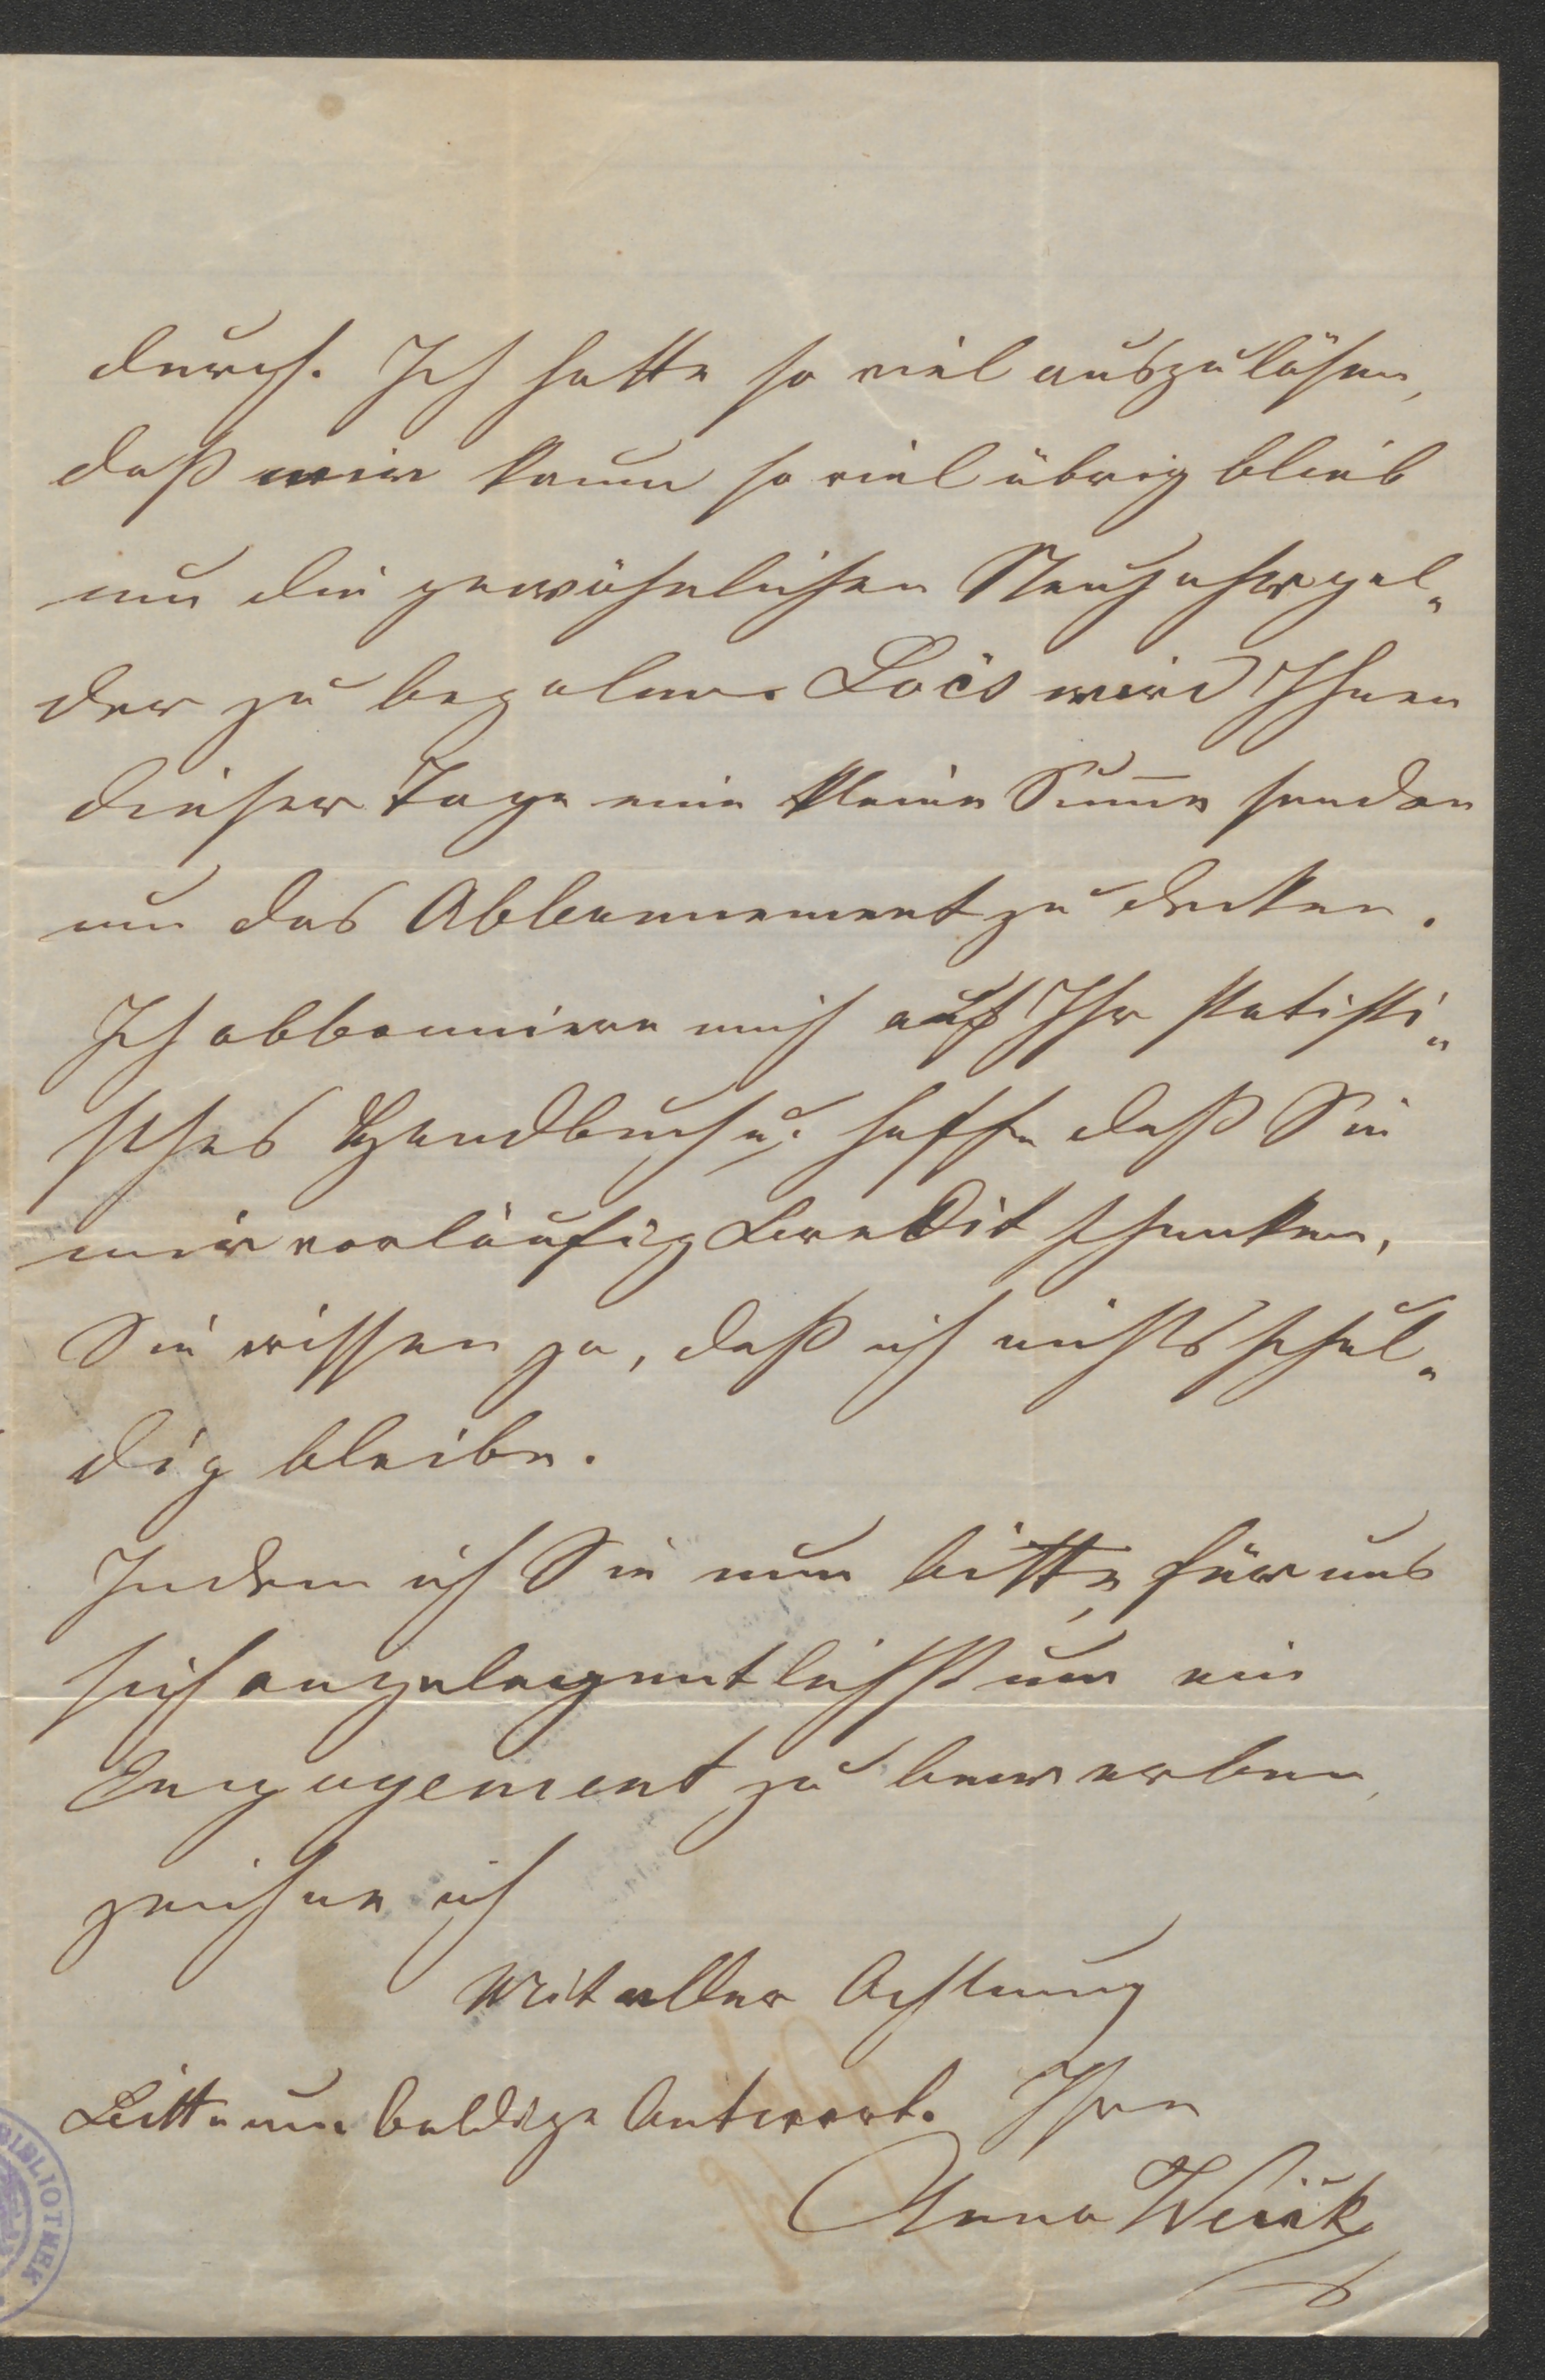 durch. Ich hatte so viel auszulösen,
daß mir kaum so viel übrig blieb
um die gewöhnlichen Neujahrsgel„
der zu bezalen. Loës wird Ihnen
dieser Tage eine kleine Sum̅e senden
um das Abbonnement zu decken.
Ich abbonniere mich auf Ihr statisti„
sches Handbuch u. hoffe daß Sie
mir vorläufig Credit schenken,
Sie wissen ja, daß ich nichts schul„
dig bleibe.
Indem ich Sie nun bitte, für uns
sich angelegentlichst um ein
Engagement zu bewerben,
zeichne ich
Mit aller Achtung
Bitte um baldige Antwort. Ihre
Anna
BIBLIOTHEK